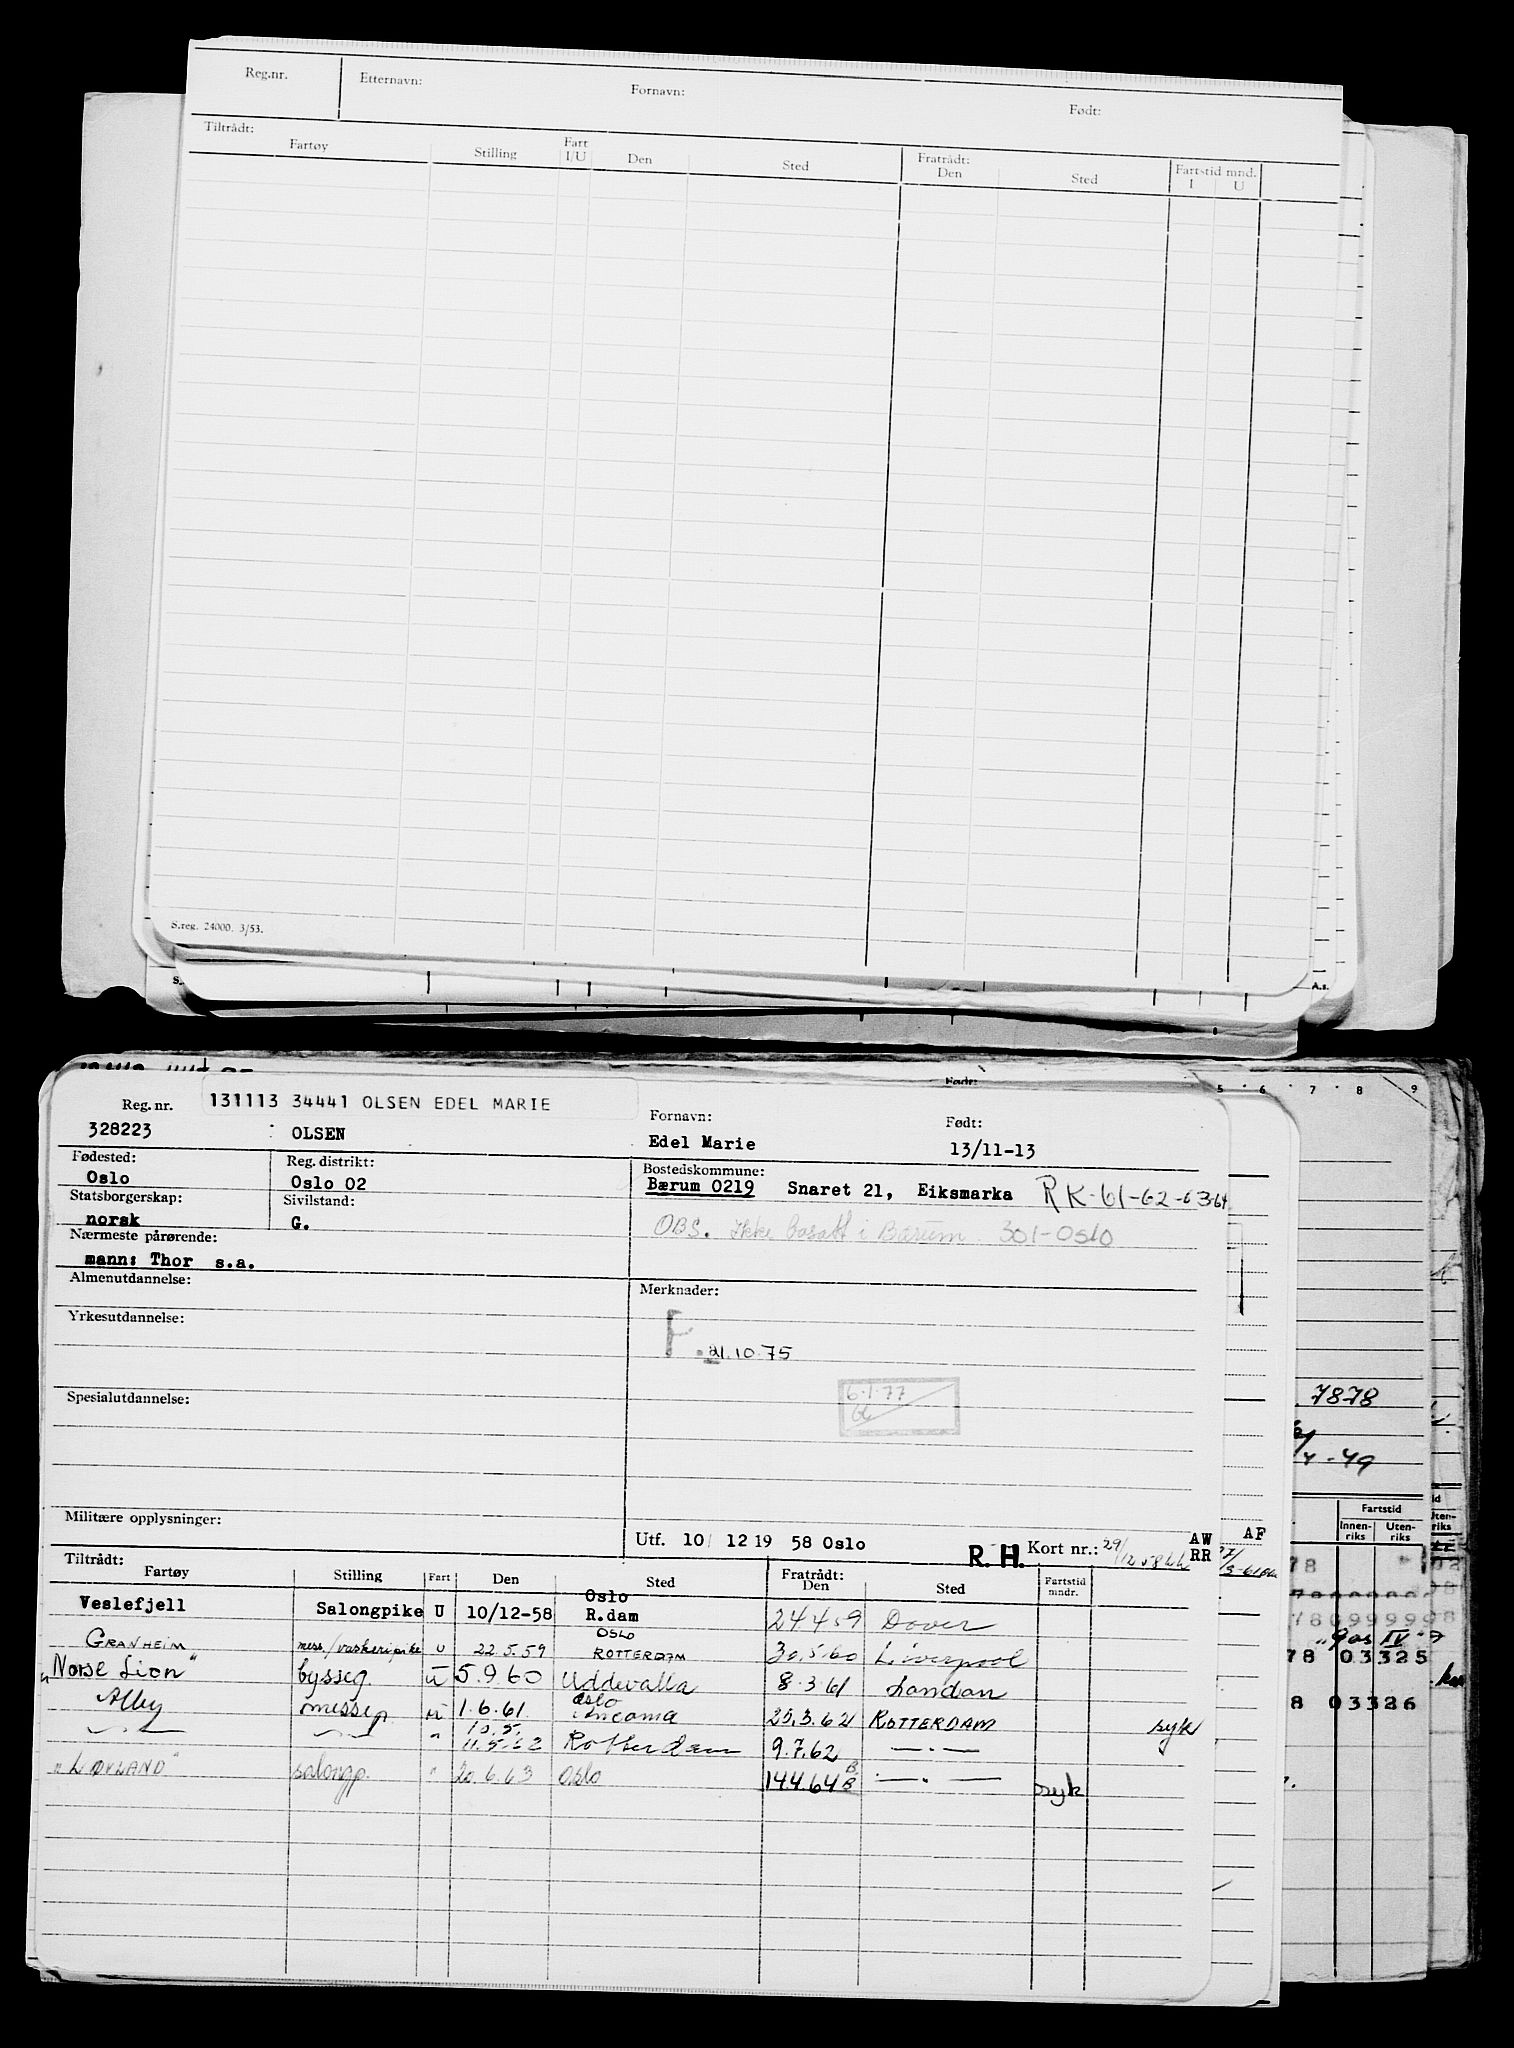 Reg.nr. Etternavn: Fornavn: Født:
Tiltrådt: Fratrådt:
Fartøy Stilling Fart I/U Den Sted Den Sted Fartstid mnd. I U
S.reg. 24000. 3/53.
A.s.
Født:
5 6 7 8 9
Reg. nr. 131113 34441 OLSEN EDEL MARIE Fornavn: Født:
328223 OLSEN Edel Marie 13/11-13
Fødested: Reg. distrikt: Bostedskommune:
Oslo Oslo 02 Bærum 0219 Snaret 21, Eiksmarka RK-61-62-63-64
Statsborgerskap: Sivilstand:
norsk G. OBS. Ikke bosatt i Bærum 301-Oslo
Nærmeste pårørende:
mann: Thor s.a.
Almenutdannelse: Merknader:
Yrkesutdannelse:
F. 21.10.75
6.1.77
Spesialutdannelse:
Militære opplysninger:
Utf. 10/ 12 19 58 Oslo R. H. Kort nr.: 29/12 58 AW RR AF
Tiltrådt: Fratrådt:
Fartøy Stilling Fart Den Sted Den Sted Fartstid mndr.
Veslefjell Salongpike U 10/12-58 Oslo R.dam 24.4.59 Dover
GRANHEIM mess./vaskeripike U 22.5.59 OSLO ROTTERDAM 30.5.60 Liverpool
"Norse Lion" bysseg. U 5.9.60 Uddevalla 8.3.61 London
Alby messep. U 1.6.61 Oslo 20.3.62 ROTTERDAM syk
—"— —"— " 10.5. 11.5.62 Rotterdam 9.7.62 —"—
"LØVLAND" salongp. " 20.6.63 Oslo 14.4.64 B B —"— syk
7878
4-49
Fartstid
Innen-riks Uten-riks
78
78 099999
"Gas IV"
78 03325
8 03326